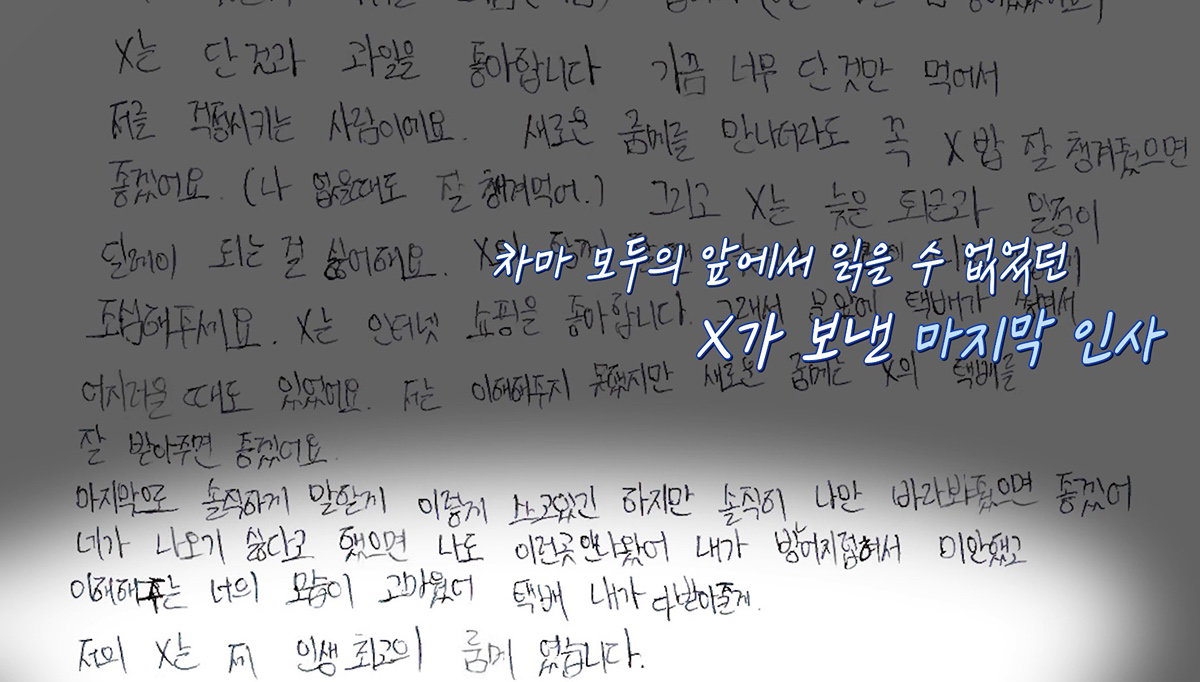 X는 단 것과 과일을 좋아합니다 가끔 너무 단 것만 먹어서
저를 걱정시키는 사람이에요. 새로운 룸메를 만나더라도 꼭 X 밥 잘 챙겨줬으면
좋겠어요. (나 없을때도 잘 챙겨먹어.) 그리고 X는 늦은 퇴근과 일정이
딜레이 되는 걸 싫어해요.
차마 모두의 앞에서 읽을 수 없었던
조심해주세요. X는 인터넷 쇼핑을 좋아합니다. 그래서 문앞에 택배가 쌓여서
X가 보낸 마지막 인사
어지러울 때도 있었어요. 저는 이해해주지 못했지만 새로운 룸메는 X의 택배를
잘 받아주면 좋겠어요.
마지막으로 솔직하게 말할게 이렇게 쓰고있긴 하지만 솔직히 나만 바라봐줬으면 좋겠어
네가 나오기 싫다고 했으면 나도 이런곳 안나왔어 내가 방어지접해서 미안했고
이해해주는 너의 모습이 고마웠어 택배 내가 다받아줄게.
저의 X는 제 인생 최고의 룸메 였습니다.